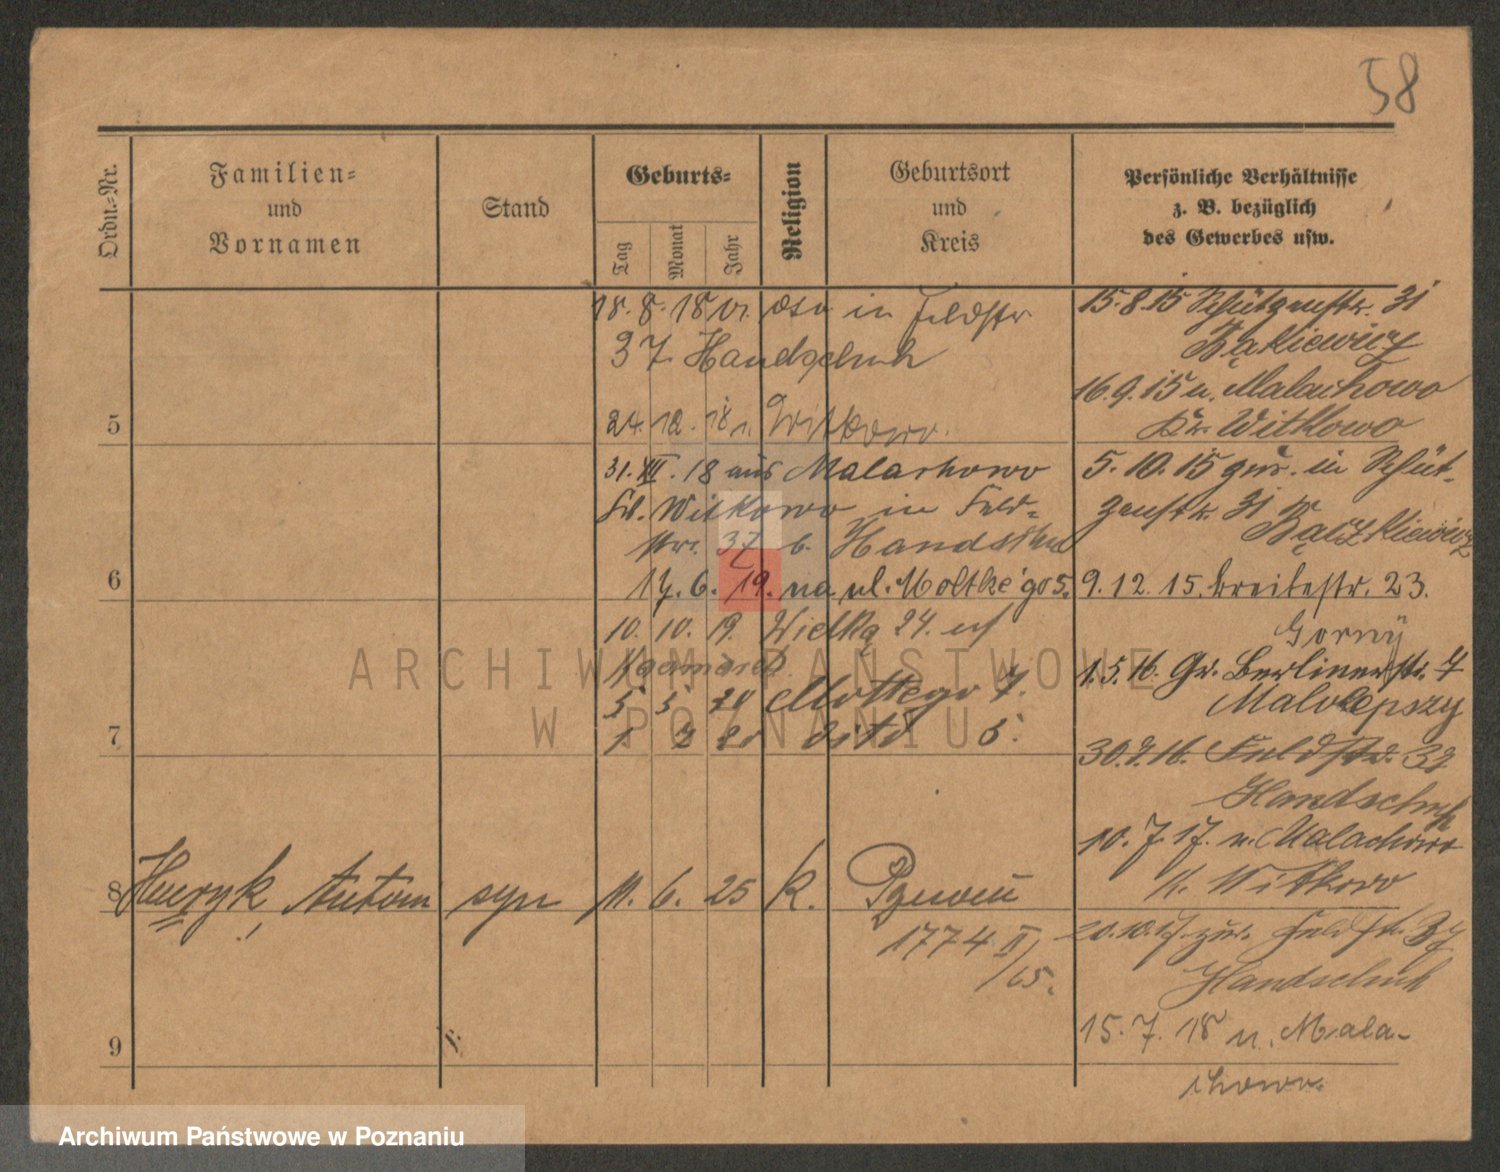 58
Ordn.-Nr.
Familien-
und
Vornamen
Stand
Geburts-
Tag
Monat
Jahr
Religion
Geburtsort
und
Kreis
Persönliche Verhältnisse
z. B. bezüglich
des Gewerbes usw.
18. 8. 18 in Feldstr
37 Handschuh
5
24. 12. 18 Witkowo.
31. XII. 18 aus Malachowo
Witkowo in Feld-
str. 37 b. Handschuh
6
17. 6. 19. na ul. Moltke'go 5.
10. 10. 19. Wielką 24.
5 5 20 Mottego 7.
7
1 7 20 dito 5.
8
Henryk, Antoni syn 11. 6. 25 K. Poznań
1774 II
/65.
9
15.8.15 Schützenstr. 31
Bąkiewicz
16.9.15 n. Malachowo
Kr. Witkowo
5. 10. 15 zur. in Schüt-
zenstr. 31
9. 12. 15. Breitestr. 23.
Gorny
1.5.16. Gr. Berlinerstr. 7
Malolepszy
30.9.16. Feldstr. 37
Handschuh
10. 7. 17. n. Malachowo
K. Witkowo
20.10.17. zur. Feldstr. 37
Handschuh
15. 7. 18 n. Mala-
chowo.
ARCHIWUM PAŃSTWOWE
W POZNANIU
Archiwum Państwowe w Poznaniu